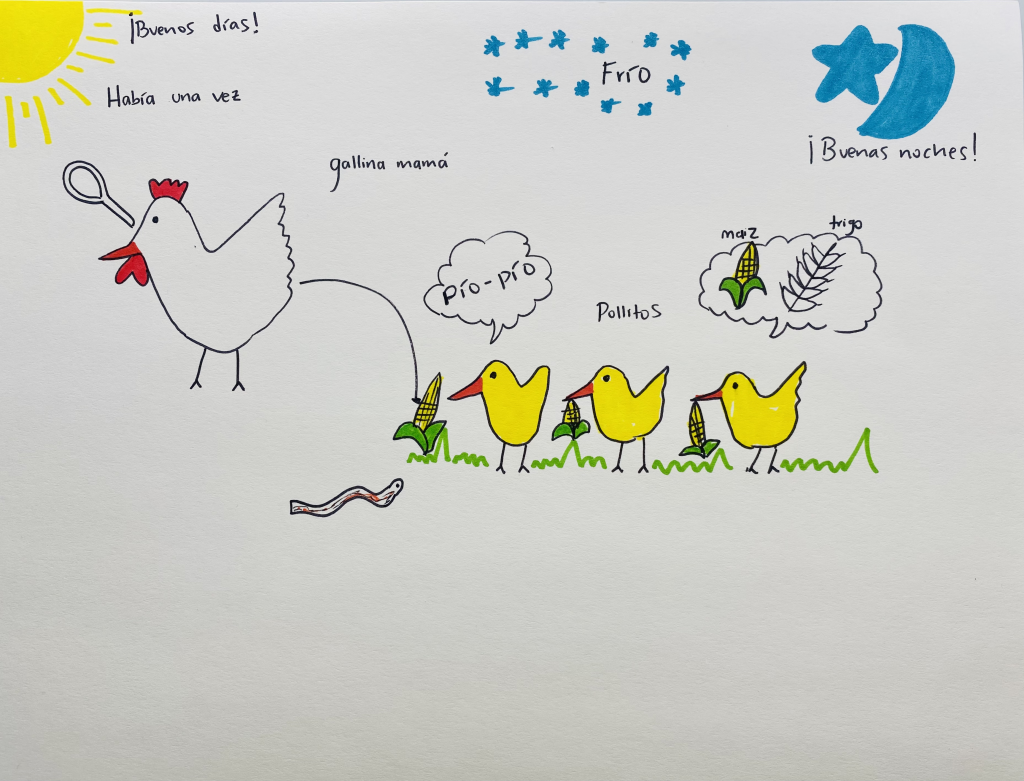 ¡Buenos días!
Había una vez
Frío
¡Buenas noches!
gallina mamá
pío-pío
Pollitos
maiz
trigo